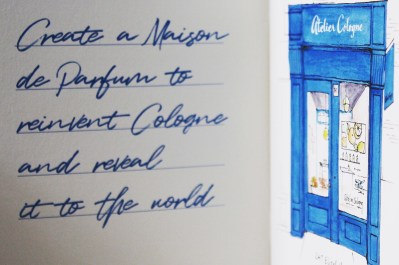 Create a Maison
de Parfum to
reinvent Cologne
and reveal
it to the world
Atelier Cologne